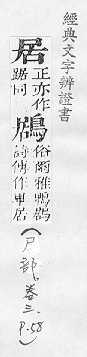 經典文字辨證書
居 正亦作踞同 鶋 俗爾雅鵯鶋詩傳作卑居
（尸部，卷三，P.58）